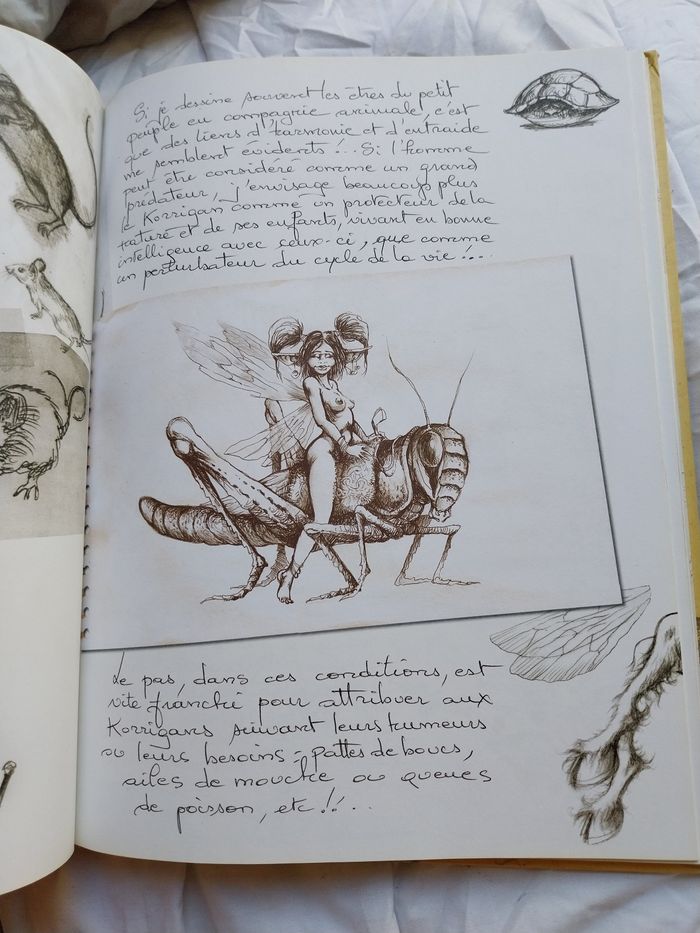 Si je dessine souvent les êtres du petit
peuple en compagnie animale, c'est
que des liens d'harmonie et d'entraide
me semblent évidents !.. Si l'homme
peut être considéré comme un grand
prédateur, j'envisage beaucoup plus
le Korrigan comme un protecteur de la
nature et de ses enfants, vivant en bonne
intelligence avec ceux-ci, que comme
un perturbateur du cycle de la vie !...
Le pas, dans ces conditions, est
vite franchi pour attribuer aux
Korrigans suivant leurs humeurs
ou leurs besoins - pattes de boucs,
ailes de mouche ou queues
de poisson, etc !!...